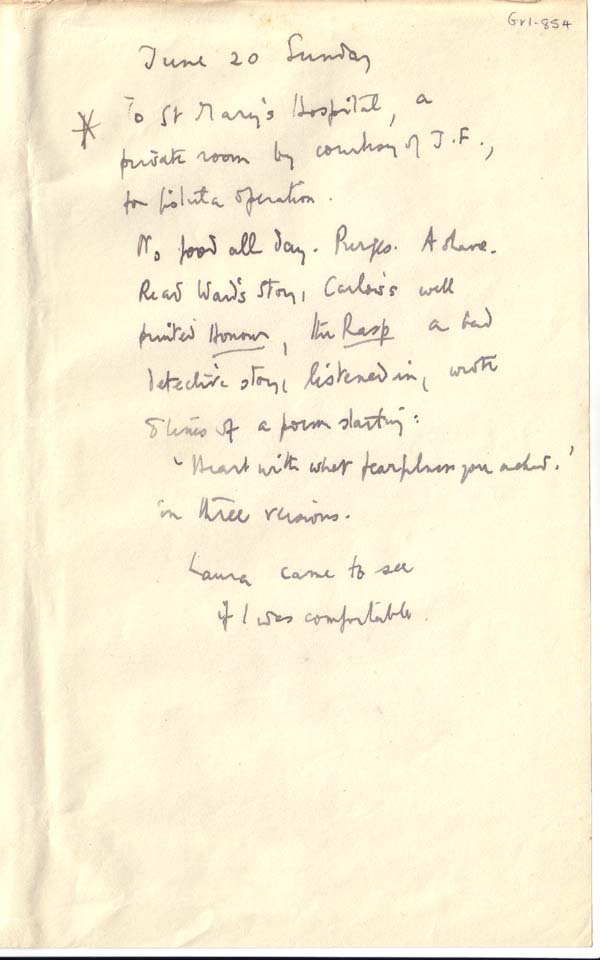 Gr1-854
June 20 Sunday
* To St Mary's Hospital, a
private room by courtesy of J.F.,
for fistula operation.
No food all day. Purges. A shave.
Read Ward's story, Carlow's well
printed Honour, the Rasp a bad
detective story, listened in, wrote
8 lines of a poem starting:
'Heart with what fearfulness you ached.'
in three versions.
Laura came to see
if I was comfortable.